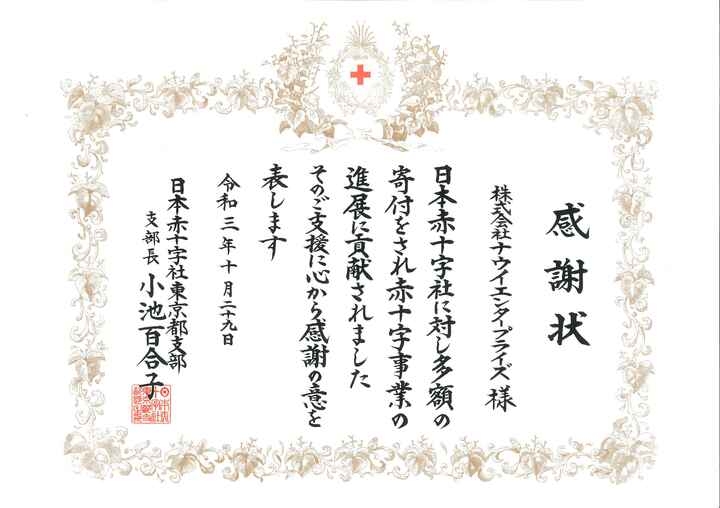 感謝状
株式会社ナウイエンタープライズ 様
日本赤十字社に対し多額の
寄付をされ赤十字事業の
進展に貢献されました
そのご支援に心から感謝の意を
表します
令和三年十月二十九日
日本赤十字社東京都支部
支部長 小池百合子